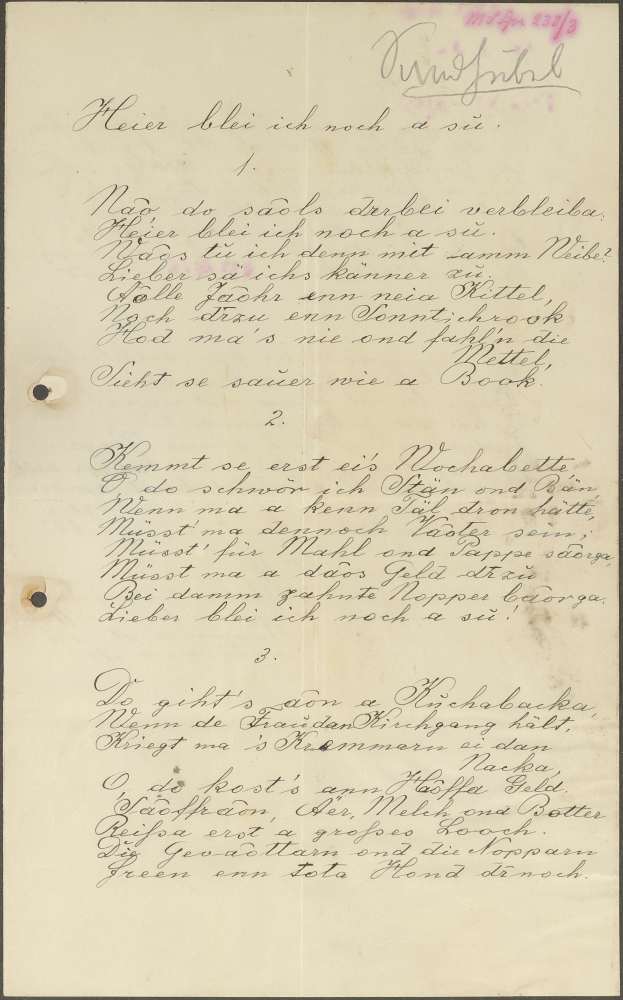 Heier blei ich noch a sŭ.
1.
Nåo do såols drbei verbleiba:
Heier blei ich noch a sŭ.
Wåos tŭ ich denn mit amm Weibe?
Lieber sä ichs känner zŭ.
Aolle Jåohr enn neia Kittel,
Noch drzu enn Sonntichrook
Hod ma's nie ond fahl'n die
Mettel,
Sieht se sauer wie a Book.
2.
Kemmt se erst ei's Wochabette
O, do schwör ich Stän ond Bän
Wenn ma a kenn Täl dron hätte,
Müsst' ma dennoch Våoter sein;
Müsst' für Mahl ond Pappe såorga,
Müsst ma a dåos Geld drzŭ
Bei damm zahnte Nopper båorga.
Lieber blei ich noch a sŭ!
3.
Do giht's åon a Kŭchabacka,
Wenn de Fraŭ dan Kirchgang hält,
Kriegt ma 's Krommarn ei dan
Nacka,
O, do kost's ann Håoffa Geld.
Såoffråon, Äer, Melch ond Botter
Reißa erst a großes Looch.
Die Gevåottarn ond die Nopparn
Freen enn tota Hond drnoch.